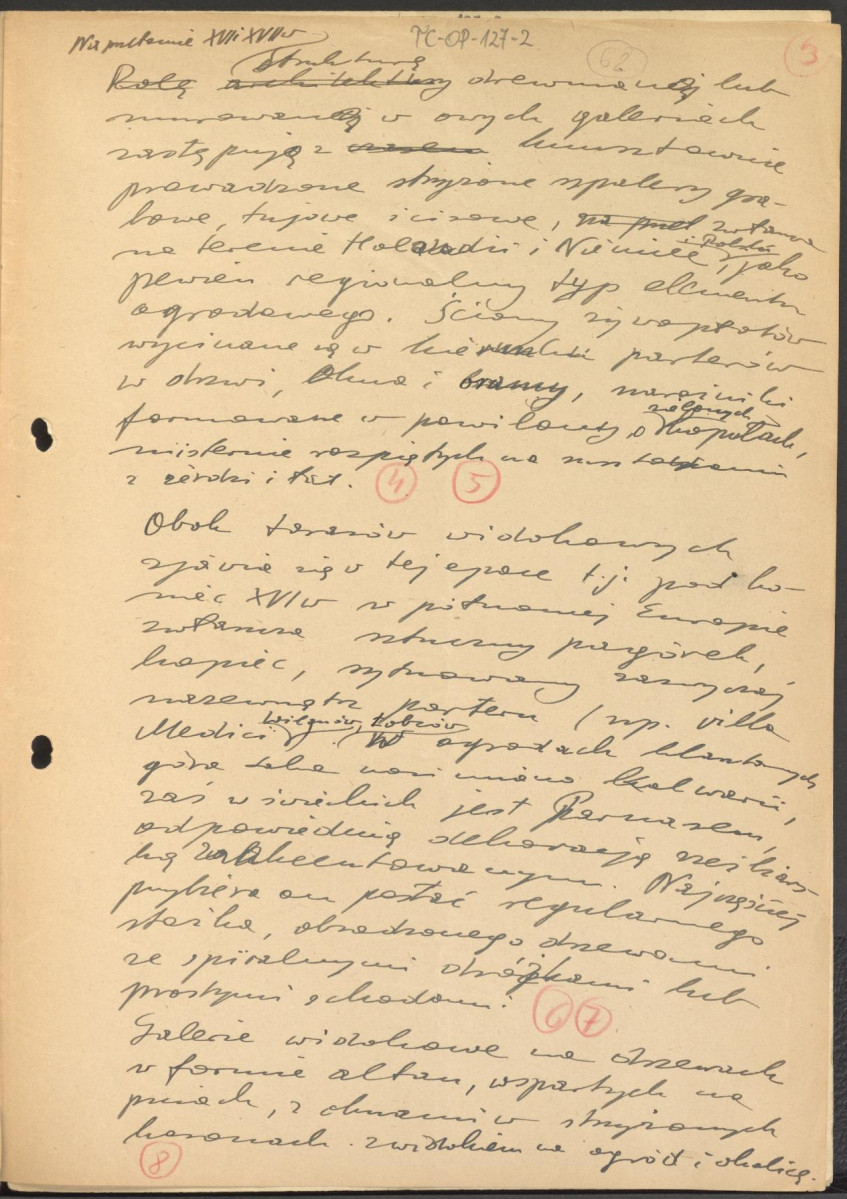 Na przełomie XVI i XVII w
TC-OP-127-2
62
3
strukturę
Rolę architektury drewnianej lub
murowanej w owych galeriach
zastępują z czasem kunsztownie
prowadzone strzyżone szpalery gra-
bowe, tujowe i cisowe, na przeł zwłaszcza
i Polski
na terenie Holandii i Niemiec, jako
pewien regionalny typ elementu
ogrodowego. Ściany żywopłotów
wycinane są w kierunku parterów
w drzwi, okna i bramy, narożniki
zielonych
formowane w pawilony o kopułach,
misternie rozpiętych na
z żerdzi i łat. 4 5
Obok tarasów widokowych
zjawia się w tej epoce t.j. pod ko-
niec XVI w w północnej Europie
zwłaszcza sztuczny pagórek,
kopiec, sytuowany zazwyczaj
nazewnątrz parteru (np. villa
Wilanów, Łobzów
Medici). W ogrodach klasztornych
góra taka nosi miano kalwarii,
zaś w świeckich jest Parnasem,
odpowiednią dekoracją rzeźbiars-
ką zaakcentowanym. Najczęściej
przybiera on postać regularnego
stożka, obsadzonego drzewami
ze spiralnymi dróżkami lub
prostymi schodami. 6 7
Galerie widokowe na drzewach
w formie altan, wspartych na
pniach, z oknami w strzyżonych
koronach z widokiem na ogród i okolicę.
8